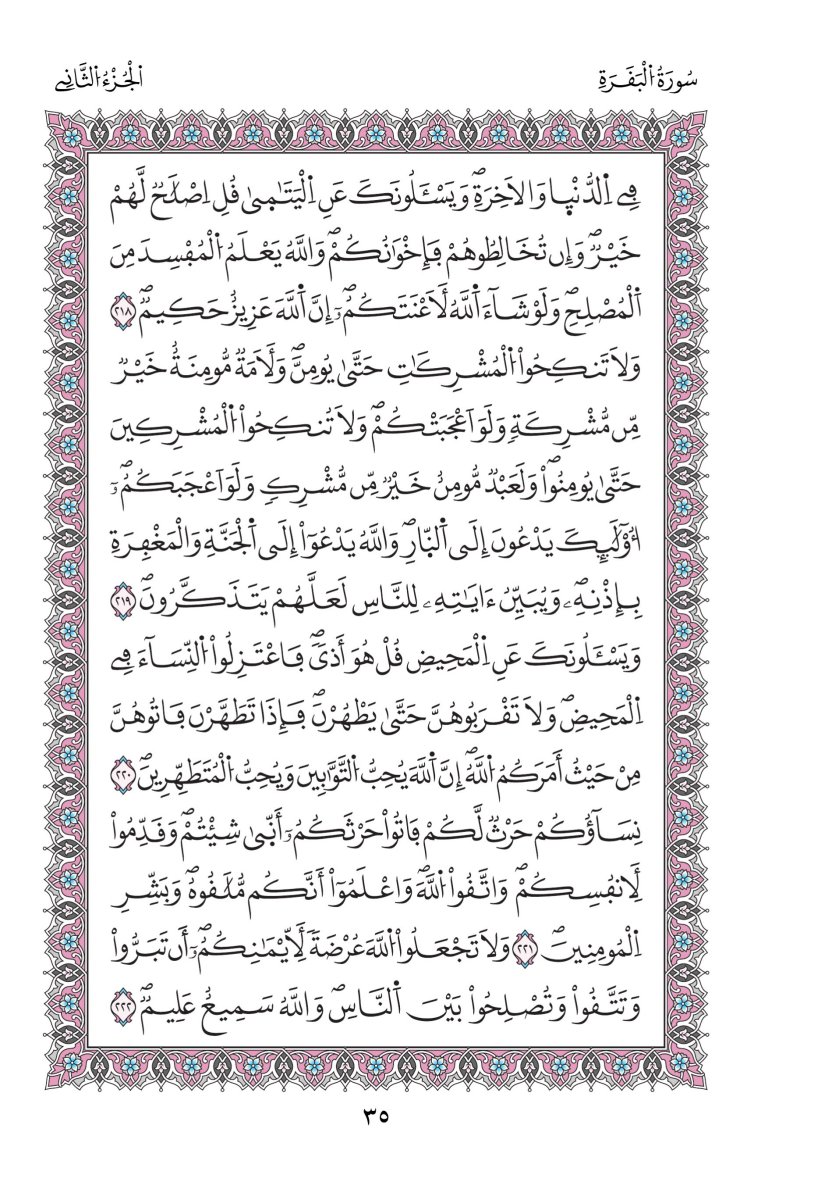 سُورَةُ الْبَقَرَةِ
الْجُزْءُ الثَّانِے
فِے اِ۬لدُّنْي۪ا وَالَاخِرَةِۖ وَيَسْـَٔلُونَكَ عَنِ اِ۬لْيَتَٰم۪ىٰ قُلِ اِصْلَٰحٞ لَّهُمْ
خَيْرٞۖ وَإِن تُخَالِطُوهُمْ فَإِخْوَٰنُكُمْۖ وَاللَّهُ يَعْلَمُ اُ۬لْمُفْسِدَ مِنَ
اَ۬لْمُصْلِحِۖ وَلَوْ شَآءَ اَ۬للَّهُ لَأَعْنَتَكُمُۥٓۖ إِنَّ اَ۬للَّهَ عَزِيزٌ حَكِيمٞۖ ٢١٨
وَلَا تَنكِحُواْ اُ۬لْمُشْرِكَٰتِ حَتَّىٰ يُومِنَّۖ وَلَأَمَةٞ مُّومِنَةٌ خَيْرٞ
مِّن مُّشْرِكَةٖ وَلَوَ اَعْجَبَتْكُمْۖ وَلَا تُنكِحُواْ اُ۬لْمُشْرِكِينَ
حَتَّىٰ يُومِنُواْۖ وَلَعَبْدٞ مُّومِنٌ خَيْرٞ مِّن مُّشْرِكٖ وَلَوَ اَعْجَبَكُمُۥٓۖ
أُوْلَٰٓئِكَ يَدْعُونَ إِلَى اَ۬لنّ۪ارِۖ وَاللَّهُ يَدْعُوٓاْ إِلَى اَ۬لْجَنَّةِ وَالْمَغْفِرَةِ
بِإِذْنِهِۦۖ وَيُبَيِّنُ ءَايَٰتِهِۦ لِلنَّاسِ لَعَلَّهُمْ يَتَذَكَّرُونَۖ ٢١٩
وَيَسْـَٔلُونَكَ عَنِ اِ۬لْمَحِيضِ قُلْ هُوَ أَذىٗۖ فَاعْتَزِلُواْ اُ۬لنِّسَآءَ فِے
اِ۬لْمَحِيضِۖ وَلَا تَقْرَبُوهُنَّ حَتَّىٰ يَطْهُرْنَۖ فَإِذَا تَطَهَّرْنَ فَاتُوهُنَّ
مِنْ حَيْثُ أَمَرَكُمُ اُ۬للَّهُۖ إِنَّ اَ۬للَّهَ يُحِبُّ اُ۬لتَّوَّٰبِينَ وَيُحِبُّ اُ۬لْمُتَطَهِّرِينَۖ ٢٢٠
نِسَآؤُكُمْ حَرْثٞ لَّكُمْ فَاتُواْ حَرْثَكُمُۥٓ أَنّ۪ىٰ شِئْتُمْۖ وَقَدِّمُواْ
لِأَنفُسِكُمْۖ وَاتَّقُواْ اُ۬للَّهَۖ وَاعْلَمُوٓاْ أَنَّكُم مُّلَٰقُوهُۖ وَبَشِّرِ
اِ۬لْمُومِنِينَۖ ٢٢١ وَلَا تَجْعَلُواْ اُ۬للَّهَ عُرْضَةٗ لِّأَيْمَٰنِكُمُۥٓ أَن تَبَرُّواْ
وَتَتَّقُواْ وَتُصْلِحُواْ بَيْنَ اَ۬لنَّاسِۖ وَاللَّهُ سَمِيعٌ عَلِيمٞۖ ٢٢٢
٣٥